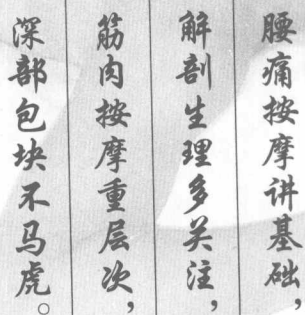 腰痛按摩讲基础，
解剖生理多关注，
筋肉按摩重层次，
深部包块不马虎。